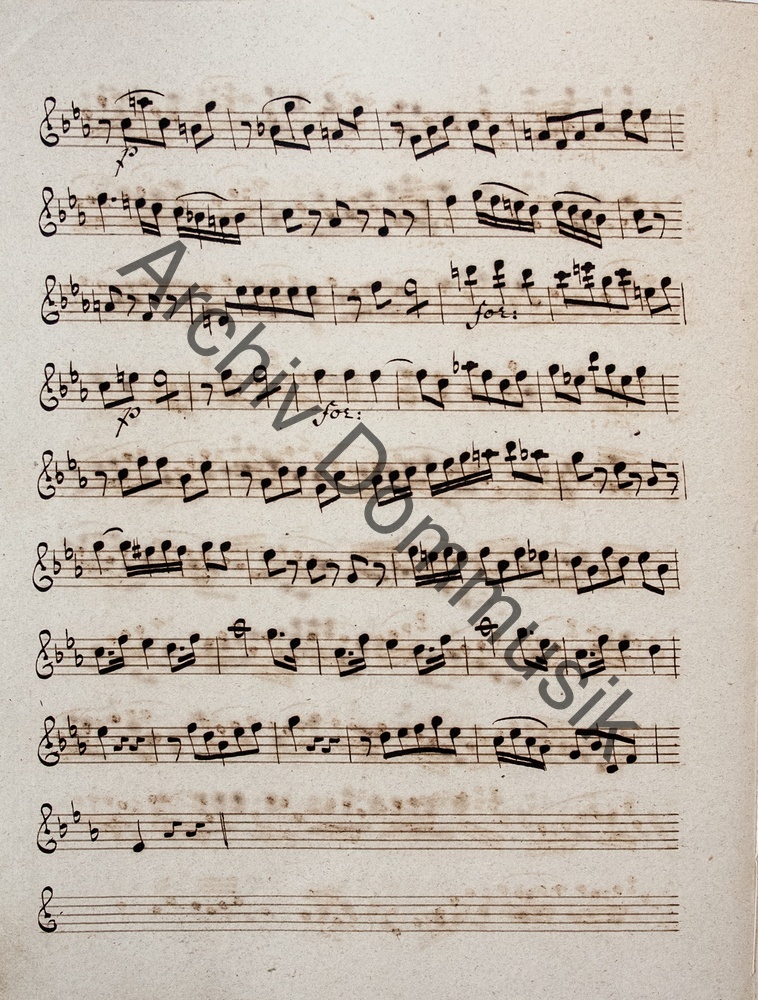 p
for:
p
for:
Archiv Dommusik